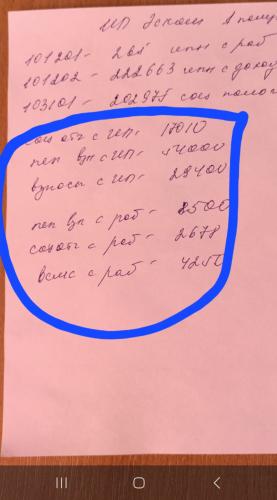 ИП Эском 1 полуг
101201 - 268 ипн с раб
101202 - 222663 ипн с доход
103101 - 202975 соц налог
соц отч с ИП - 17010
пен взн с ИП - 54000
взносы с ИП - 29400
пен вз с раб - 8500
соц отч с раб - 2678
всмс с раб - 4250